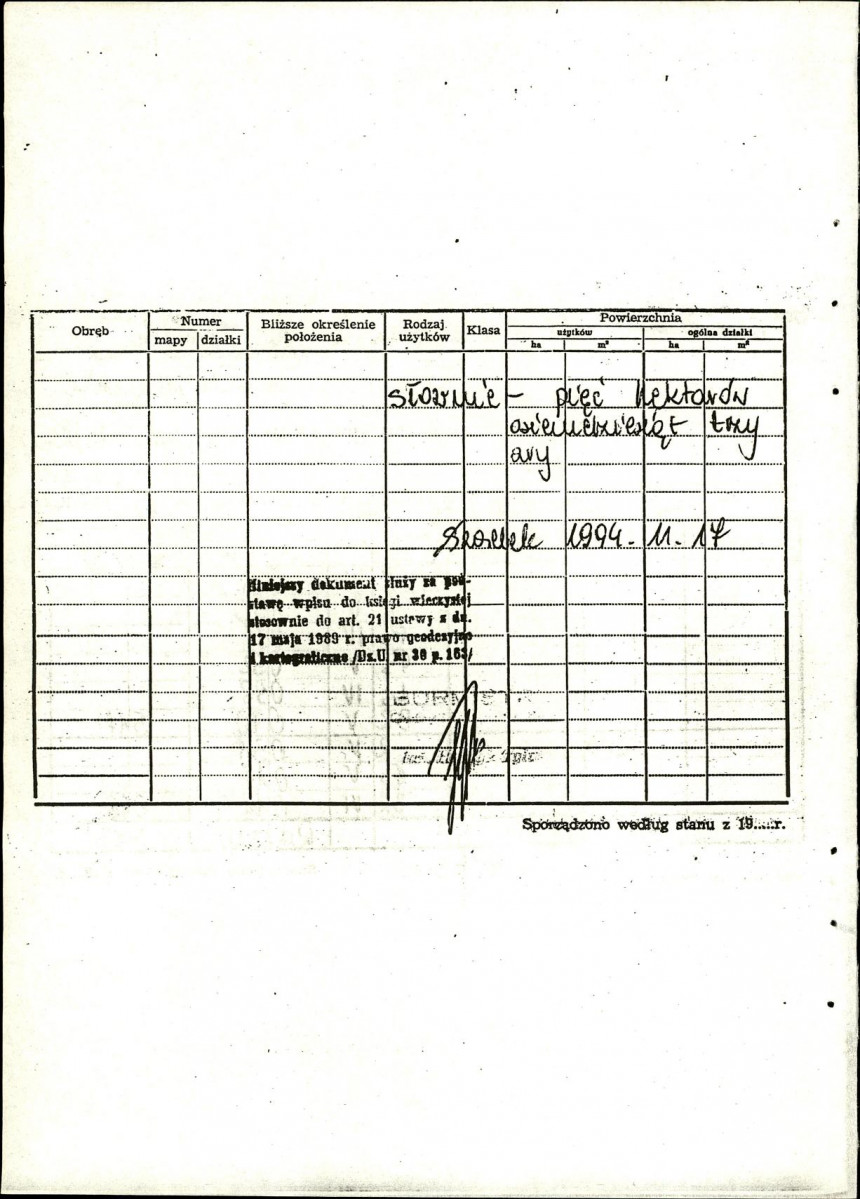 Obręb
Numer
mapy działki
Bliższe określenie
położenia
Rodzaj
użytków
Klasa
Powierzchnia
użytków ogólna działki
ha m² ha m²
słownie – pięć hektarów
osiemdziesiąt trzy
ary
1994. 11. 17
Niniejszy dokument służy za pod-
stawę wpisu do księgi wieczystej
stosownie do art. 21 ustawy z dn.
17 maja 1989 r. prawo geodezyjne
i kartograficzne /Dz.U. nr 30 p. 163/
BURMISTRZ
Sporządzono według stanu z 19.....r.